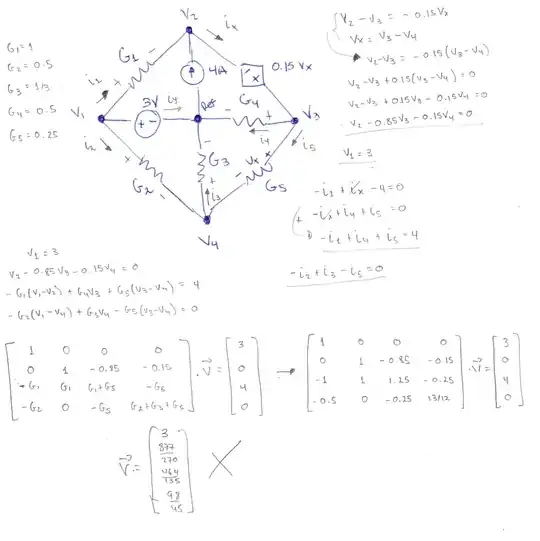 G1=1
G2=0.5
G3=1/3
G4=0.5
G5=0.25
V2
ix
G1
-
+
i1
4A
x
0.15 Vx
3V
i4
+ -
V1
i2
- G4 +
V3
i4
i5
+
G2
-
-
G3
+
i3
Vx
G5
V4
V2 - V3 = -0.15Vx
Vx = V3 - V4
V2 - V3 = -0.15(V3-V4)
V2 - V3 + 0.15(V3-V4) = 0
V2 - V3 + 0.15V3 - 0.15V4 = 0
V2 - 0.85V3 - 0.15V4 = 0
V1 = 3
-i1 + ix - 4 = 0
+ -ix + i4 + i5 = 0
-i1 + i4 + i5 = 4
-i2 + i3 - i5 = 0
V1 = 3
V2 - 0.85V3 - 0.15V4 = 0
-G1(V1-V2) + G4V3 + G5(V3-V4) = 4
-G2(V1-V4) + G3V4 - G5(V3-V4) = 0
1 0 0 0
0 1 -0.85 -0.15
-G1 G1 G4+G5 -G5
-G2 0 -G5 G2+G3+G5
. V =
3
0
4
0
→
1 0 0 0
0 1 -0.85 -0.15
-1 1 1.25 -0.25
-0.5 0 -0.25 13/12
. V =
3
0
4
0
V =
3
877/270
464/135
98/45